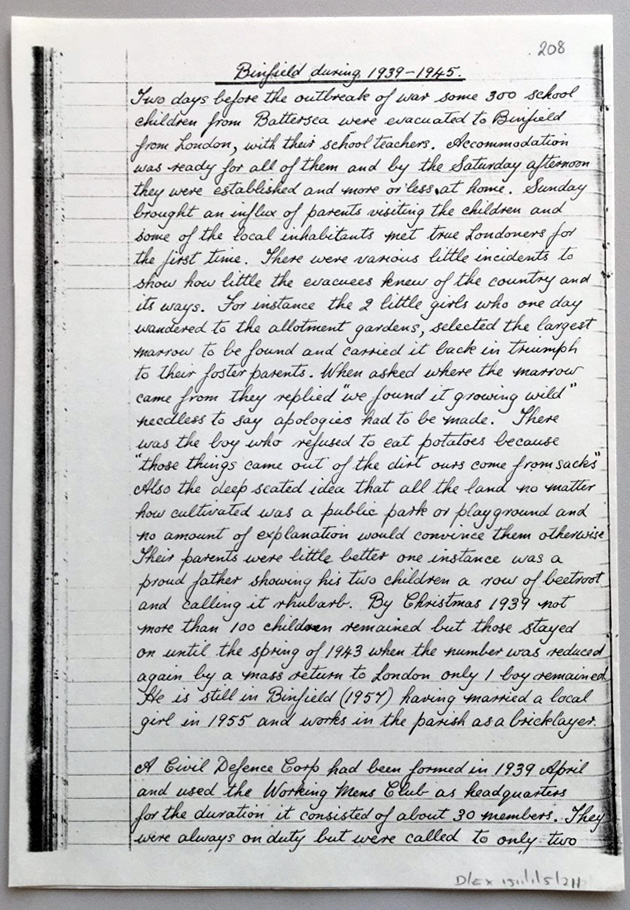 208
Binfield during 1939-1945.
Two days before the outbreak of war some 300 school
children from Battersea were evacuated to Binfield
from London, with their school teachers. Accommodation
was ready for all of them and by the Saturday afternoon
they were established and more or less at home. Sunday
brought an influx of parents visiting the children and
some of the local inhabitants met true Londoners for
the first time. There were various little incidents to
show how little the evacuees knew of the country and
its ways. For instance the 2 little girls who one day
wandered to the allotment gardens, selected the largest
marrow to be found and carried it back in triumph
to their foster parents. When asked where the marrow
came from they replied "we found it growing wild"
needless to say apologies had to be made. There
was the boy who refused to eat potatoes because
"those things came out of the dirt ours come from sacks"
Also the deep seated idea that all the land no matter
how cultivated was a public park or playground and
no amount of explanation would convince them otherwise
Their parents were little better one instance was a
proud father showing his two children a row of beetroot
and calling it rhubarb. By Christmas 1939 not
more than 100 children remained but those stayed
on until the spring of 1943 when the number was reduced
again by a mass return to London only 1 boy remained.
He is still in Binfield (1957) having married a local
girl in 1955 and works in the parish as a bricklayer.
A Civil Defence Corp had been formed in 1939 April
and used the Working Mens Club as headquarters
for the duration it consisted of about 30 members. They
were always on duty but were called to only two
D/EX